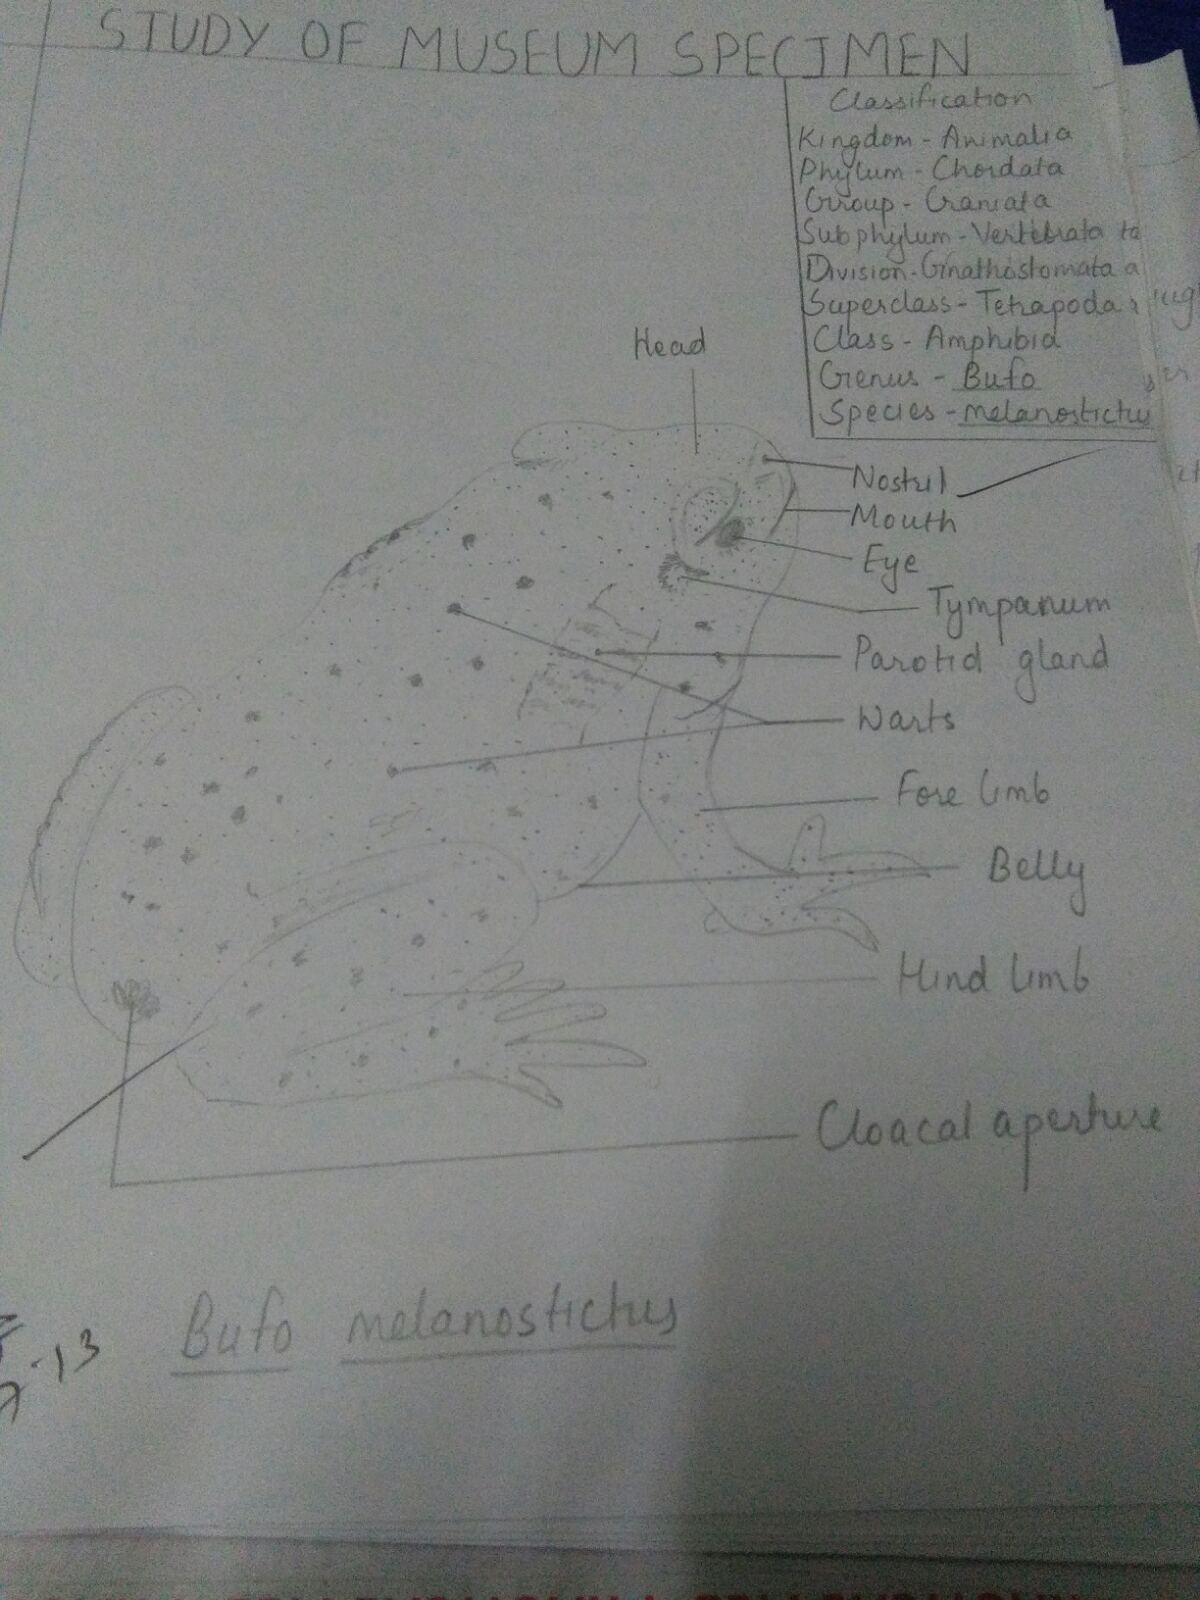 STUDY OF MUSEUM SPECIMEN
Classification
Kingdom - Animalia
Phylum - Chordata
Group - Craniata
Subphylum - Vertebrata
Division - Gnathostomata
Superclass - Tetrapoda
Class - Amphibia
Genus - Bufo
Species - melanostictus
Head
Nostril
Mouth
Eye
Tympanum
Parotid gland
Warts
Fore limb
Belly
Hind limb
Cloacal aperture
Bufo melanostictus